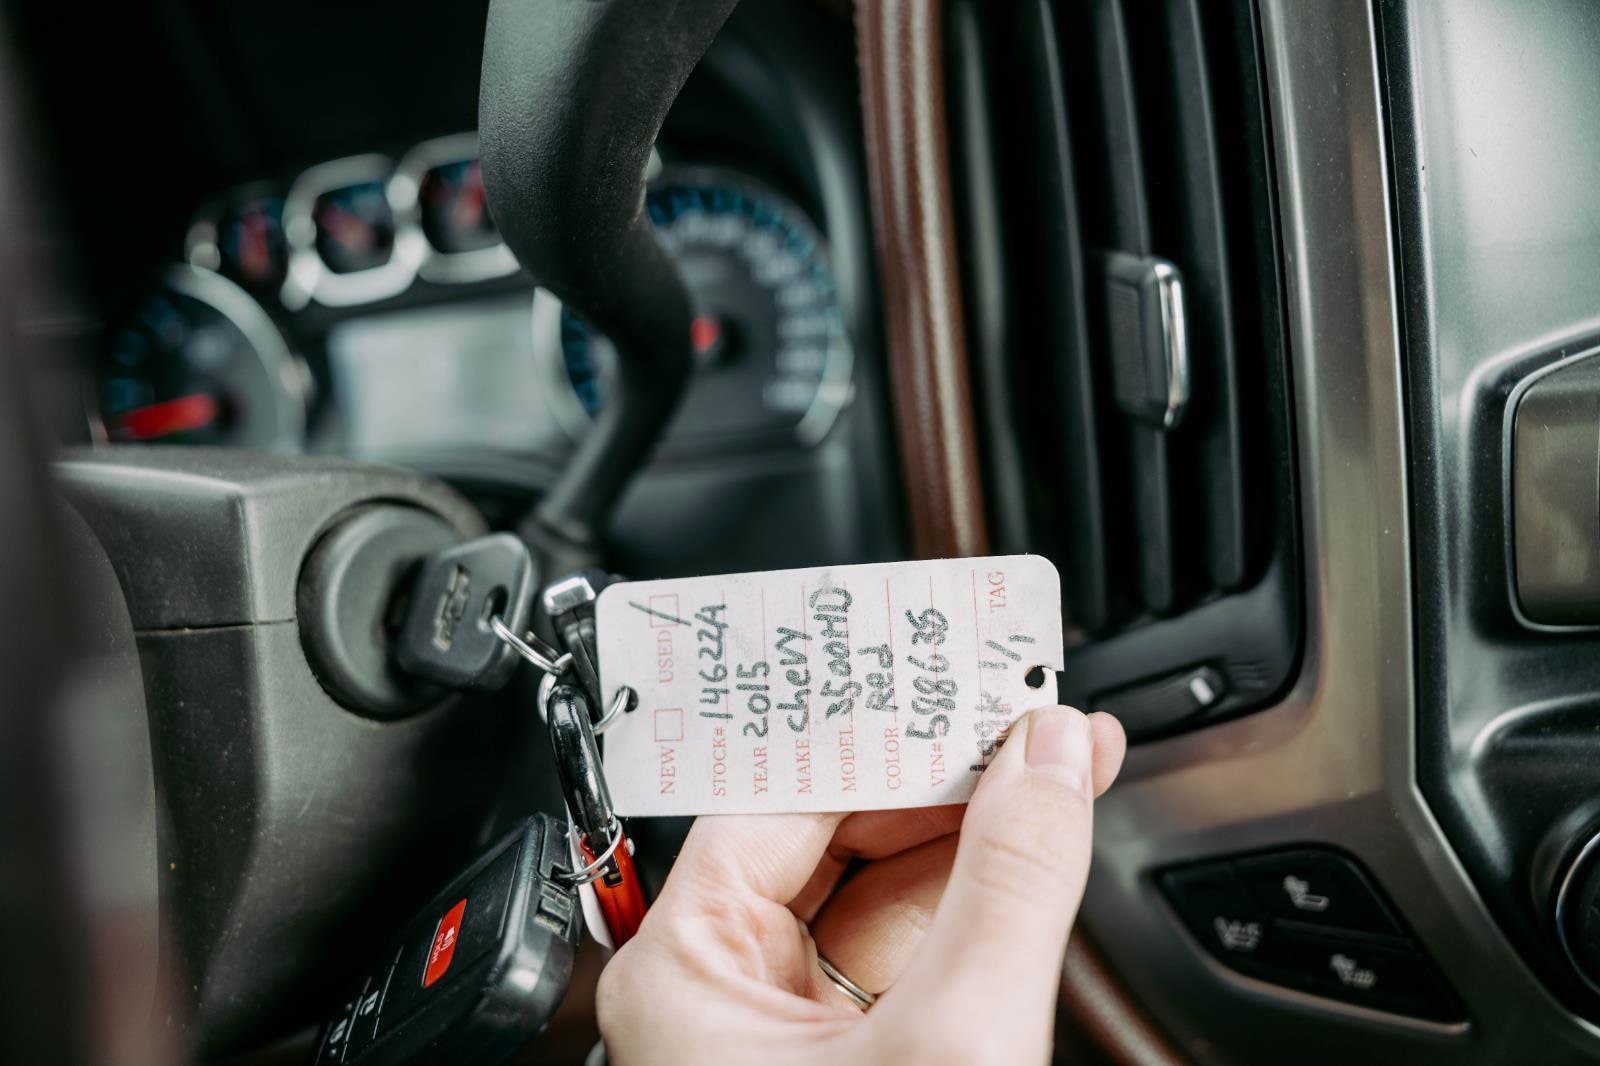 NEW USED /
STOCK# 14622A
YEAR 2015
MAKE Chevy
MODEL 3500HD
COLOR Red
VIN# 588635
1/1 TAG
HOLD